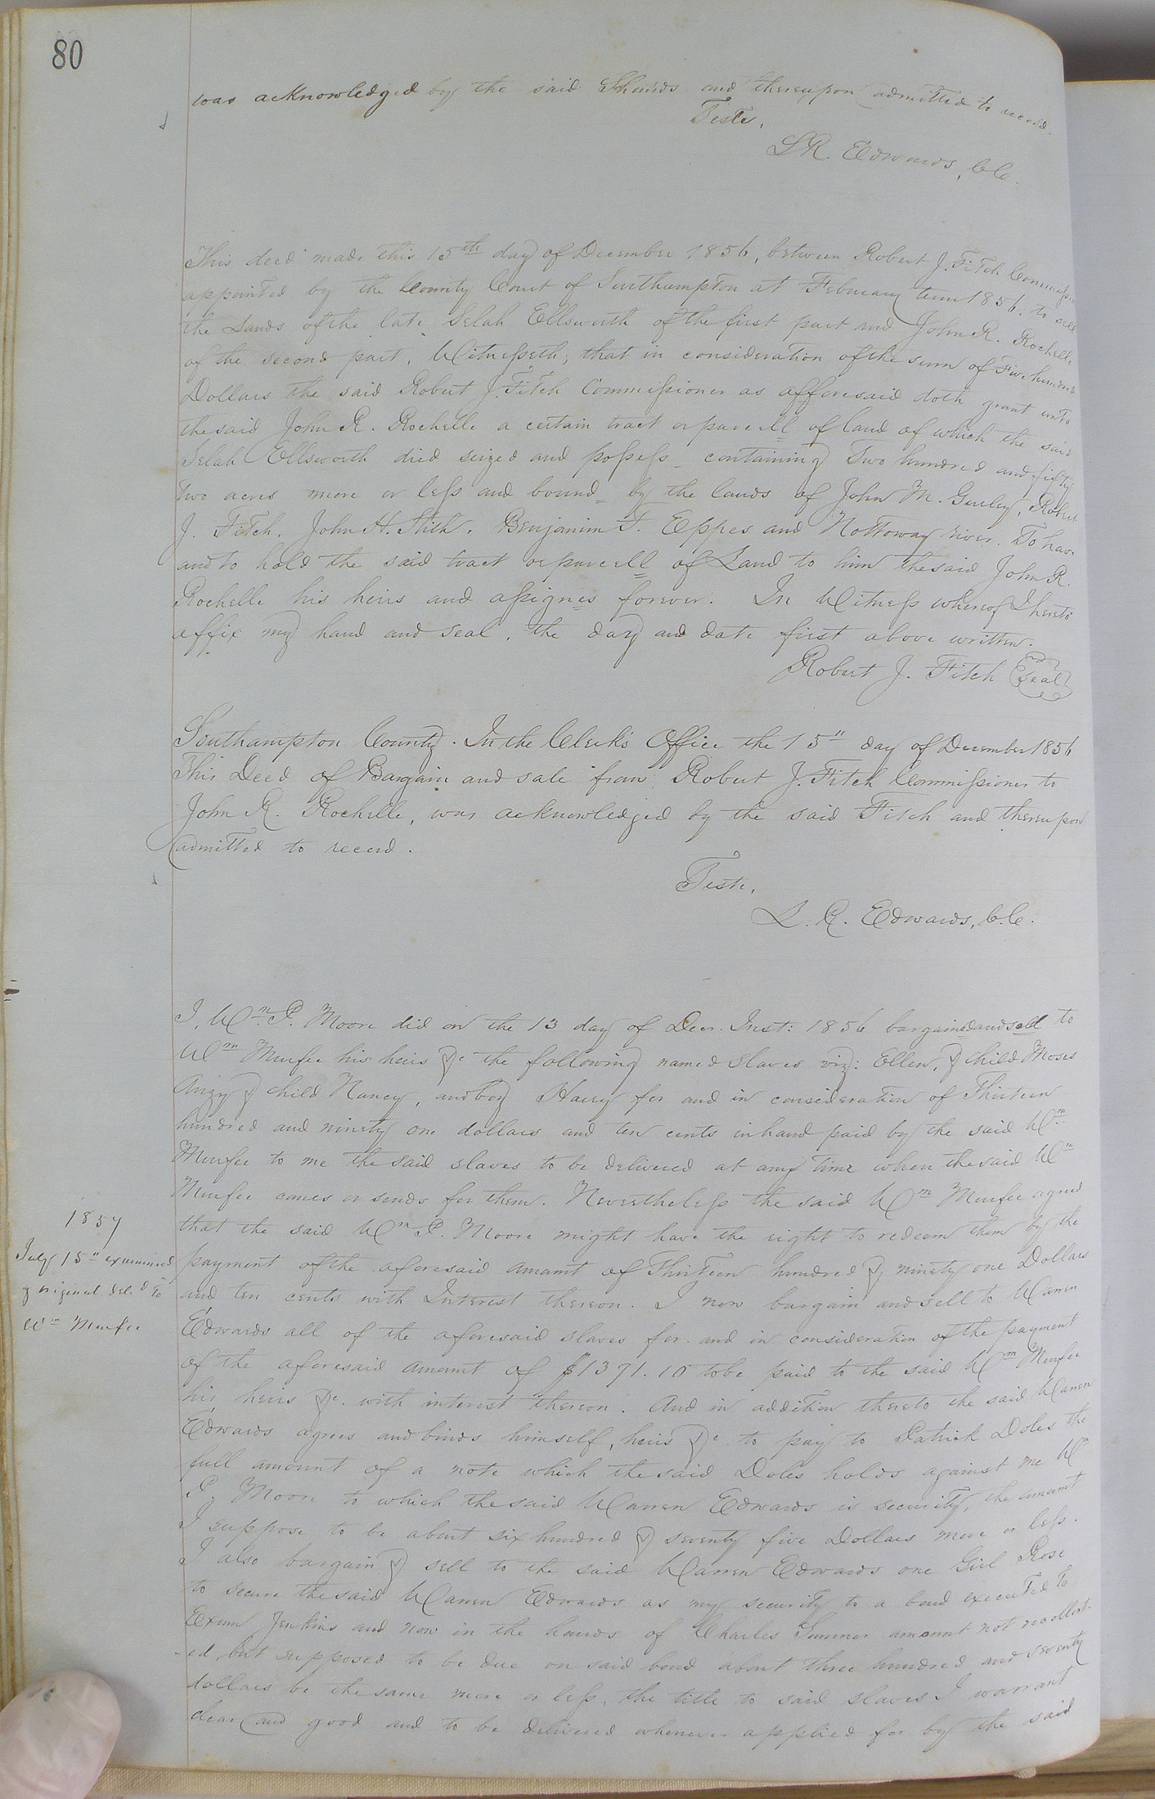 80
was acknowledged by the said and thereupon admitted to record.
Teste,
L R. Edwards, C.C.
This deed made this 15th day of December 1856, between Robert J. Fitch Commissioner
appointed by the County Court of Southampton at February term 1856, to sell
the Lands of the late Selah Ellsworth of the first part and John R. Rochelle
of the second part, Witnesseth, that in consideration of the sum of Five hundred
Dollars the said Robert J. Fitch Commissioner as afforesaid doth grant unto
the said John R. Rochelle a certain tract or parcell of land of which the said
Selah Ellsworth died seized and possess containing Two hundred and fifty
two acres more or less and bound by the lands of John M. Gurley, Robert
J. Fitch, John H. Stith, Benjamin F. Eppes and Nottoway river. To have
and to hold the said tract or parcell of Land to him the said John R.
Rochelle his heirs and assignes forever. In Witness whereof I hereto
affix my hand and seal, the day and date first above written.
Robert J. Fitch Seal
Southampton County. In the Clerk's Office the 15" day of December 1856
This Deed of Bargain and sale from Robert J. Fitch Commissioner to
John R. Rochelle, was acknowledged by the said Fitch and thereupon
admitted to record.
Teste,
L. R. Edwards, C.C.
I, Wm. P. Moore did on the 13 day of Decr. Inst: 1856 bargained and sold to
Wm Murfee his heirs &c the following named slaves viz: Ellen, & child Moses
Anzy & child Nancy, and boy Harry for and in consideration of Thirteen
hundred and ninety one dollars and ten cents in hand paid by the said Wm
Murfee to me the said slaves to be delivered at any time when the said Wm
Murfee comes or sends for them. Nevertheless the said Wm Murfee agreed
that the said Wm P. Moore might have the right to redeem them by the
payment of the aforesaid amount of Thirteen hundred & ninety one Dollars
and ten cents with Interest thereon. I now bargain and sell to Warren
Edwards all of the aforesaid slaves for and in consideration of the payment
of the aforesaid amount of $1391.10 to be paid to the said Wm Murfee
his heirs &c. with interest thereon. And in addition thereto the said Warren
Edwards agrees and binds himself, heirs &c to pay to Patrick Doles the
full amount of a note which the said Doles holds against me Wm
P. Moore to which the said Warren Edwards is security, the amount
I suppose to be about six hundred & seventy five Dollars more or less.
I also bargain & sell to the said Warren Edwards one Girl Rose
to secure the said Warren Edwards as my security to a bond executed to
Exum Jenkins and now in the hands of Charles amount not recollect-
-ed, but supposed to be due on said bond about three hundred and seventy
dollars be the same more or less, the title to said slaves I warrant
clear and good and to be delivered whenever applied for by the said
1857
July 15" examined
& original deld to
Wm Murfee